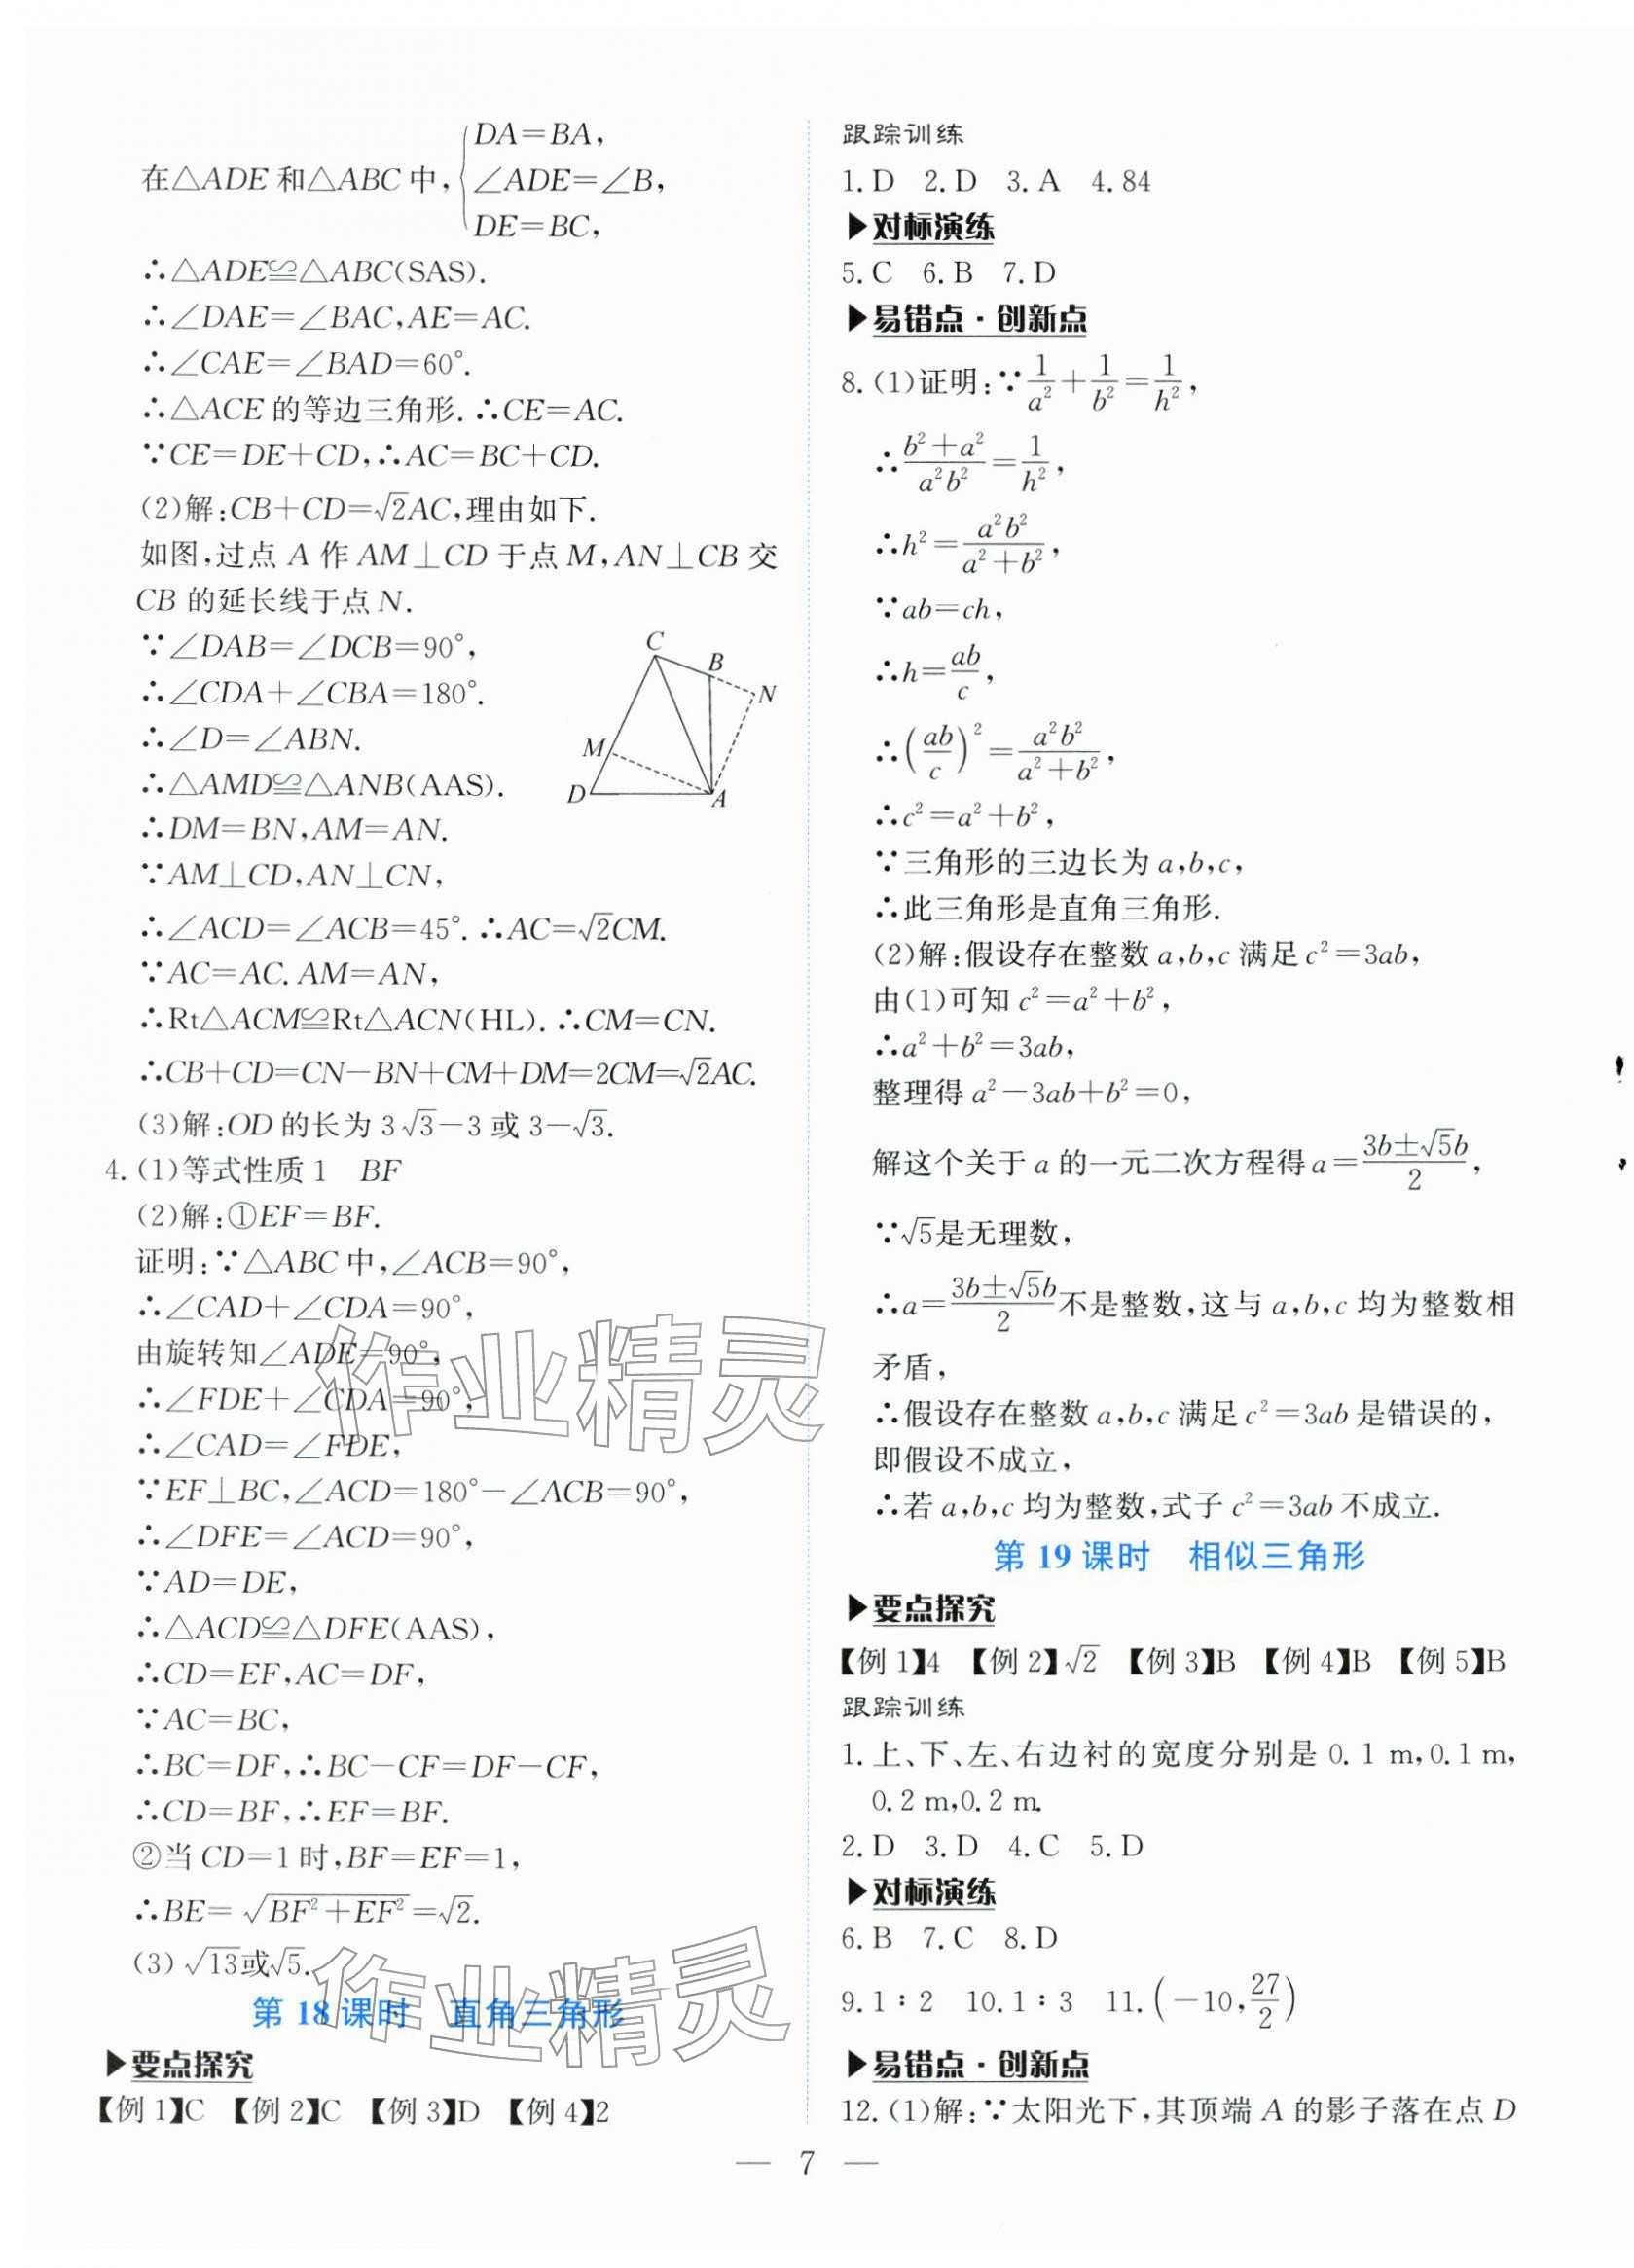 在△ADE 和△ABC 中，{DA=BA，
∠ADE=∠B，
DE=BC，
∴△ADE≌△ABC(SAS).
∴∠DAE=∠BAC，AE=AC.
∴∠CAE=∠BAD=60°.
∴△ACE 的等边三角形.∴CE=AC.
∵CE=DE+CD，∴AC=BC+CD.
(2)解：CB+CD=√2AC，理由如下.
如图，过点 A 作 AM⊥CD 于点 M，AN⊥CB 交
CB 的延长线于点 N.
∵∠DAB=∠DCB=90°，
∴∠CDA+∠CBA=180°.
∴∠D=∠ABN.
∴△AMD≌△ANB(AAS).
∴DM=BN，AM=AN.
∵AM⊥CD，AN⊥CN，
∴∠ACD=∠ACB=45°.∴AC=√2CM.
∵AC=AC.AM=AN，
∴Rt△ACM≌Rt△ACN(HL).∴CM=CN.
∴CB+CD=CN−BN+CM+DM=2CM=√2AC.
C
B
N
M
D
A
(3)解：OD 的长为 3√3−3 或 3−√3.
4.(1)等式性质 1　BF
(2)解：①EF=BF.
证明：∵△ABC 中，∠ACB=90°，
∴∠CAD+∠CDA=90°，
由旋转知∠ADE=90°，
∴∠FDE+∠CDA=90°，
∴∠CAD=∠FDE，
∵EF⊥BC，∠ACD=180°−∠ACB=90°，
∴∠DFE=∠ACD=90°，
∵AD=DE，
∴△ACD≌△DFE(AAS)，
∴CD=EF，AC=DF，
∵AC=BC，
∴BC=DF，∴BC−CF=DF−CF，
∴CD=BF，∴EF=BF.
②当 CD=1 时，BF=EF=1，
∴BE=√(BF²+EF²)=√2.
(3)√13或√5.
作业精灵
作业精灵
第 18 课时　直角三角形
▶要点探究
【例 1】C　【例 2】C　【例 3】D　【例 4】2
跟踪训练
1.D　2.D　3.A　4.84
▶对标演练
5.C　6.B　7.D
▶易错点·创新点
8.(1)证明：∵1/a²+1/b²=1/h²，
∴(b²+a²)/(a²b²)=1/h²，
∴h²=a²b²/(a²+b²)，
∵ab=ch，
∴h=ab/c，
∴(ab/c)²=a²b²/(a²+b²)，
∴c²=a²+b²，
∵三角形的三边长为 a，b，c，
∴此三角形是直角三角形.
(2)解：假设存在整数 a，b，c 满足 c²=3ab，
由(1)可知 c²=a²+b²，
∴a²+b²=3ab，
整理得 a²−3ab+b²=0，
解这个关于 a 的一元二次方程得 a=(3b±√5b)/2，
∵√5是无理数，
∴a=(3b±√5b)/2不是整数，这与 a，b，c 均为整数相
矛盾，
∴假设存在整数 a，b，c 满足 c²=3ab 是错误的，
即假设不成立，
∴若 a，b，c 均为整数，式子 c²=3ab 不成立.
第 19 课时　相似三角形
▶要点探究
【例 1】4　【例 2】√2　【例 3】B　【例 4】B　【例 5】B
跟踪训练
1.上、下、左、右边衬的宽度分别是 0.1 m，0.1 m，
0.2 m，0.2 m.
2.D　3.D　4.C　5.D
▶对标演练
6.B　7.C　8.D
9.1∶2　10.1∶3　11.(−10，27/2)
▶易错点·创新点
12.(1)解：∵太阳光下，其顶端 A 的影子落在点 D
— 7 —